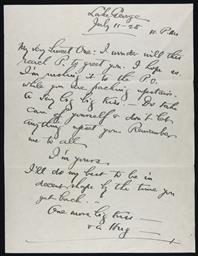 Lake George
July 11-28 10 P.M.
My very Sweet One: I wonder will this
reach P. to greet you. I hope so.
I'm rushing it to the P.O.
while you are packing upstairs.
A very big kiss — Do take
care of yourself & don't let
anything upset you. Remember
me to all
I'm yours.
I'll do my best to be in
decent shape by the time you
get back. —
One more big kiss —
& a Hug —